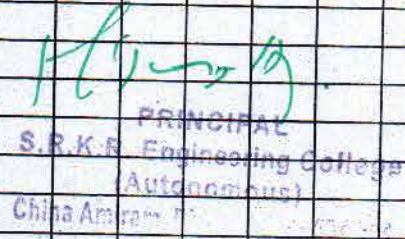 PRINCIPAL
S.R.K.R. Engineering College
(Autonomous)
China Amiram